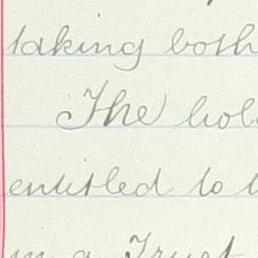 taking both
The hol
entitled to
in a Trust